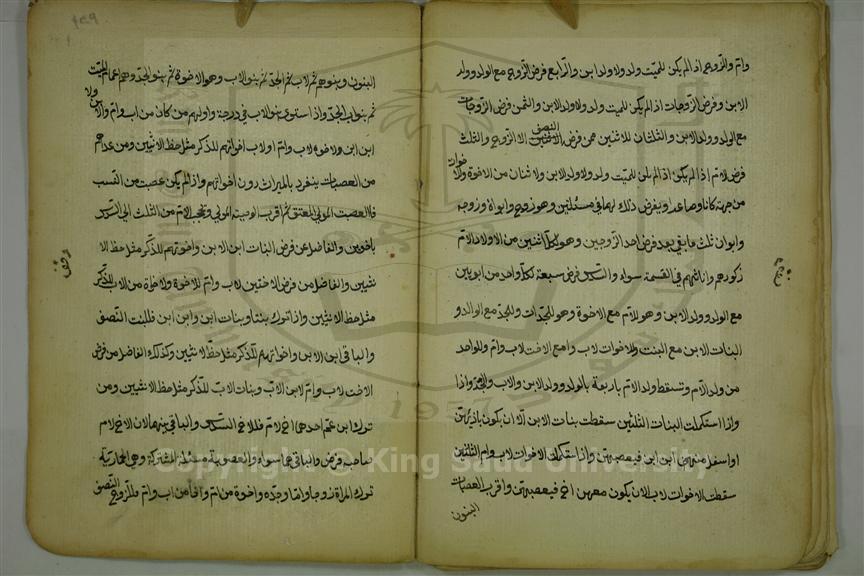 وام والزوج اذا لم يكن للميت ولد ولا ولد ابن والرابع فرض الزوج مع الولد وولد
الابن وفرض الزوجات اذا لم يكن للميت ولد ولا ولد الابن والثمن فرض الزوجات
مع الولد وولد الابن والثلثان للاثنين ممن فرض النصف الا الزوج والثلث
فرض للام اذا لم يكن للميت ولد ولا ولد الابن ولا ثنان من الاخوة ولاخوات
من جهة كانا وصاعدا ويفرض ذلك لهما في مسئلتين وهو زوج وابواة وزوجه
وابوان ثلث ما بقي بعد فرض احد الزوجين وهو لكل اثنين من الاولاد الام
ذكورهم واناثهم في القسمة سواء والسدس فرض سبعة لكل واحد من ابويين
مع الولد وولد الابن وهو للام مع الاخوة وهو للجدات وللجد مع الوالد و
البنات الابن مع البنت وللاخوات لاب وامع الاخت لاب وام وللواحد
من ولد الام وتسقط ولد الام باربعة بالولد وولد الابن والاب والجد واذا
واذا استكملت البنات الثلثين سقطت بنات الابن الا ان يكون بازئهن
او اسفل منهن ابن ابن فيعصبهن واذا استكملت الاخوات لاب وام الثلثين
سقطت الاخوات لاب الا ان يكون معهن اخ فيعصبهن واقرب العصبات
البنون
البنون وبنوهم ثم لاب ثم الجد ثم بنو الاب وهو الاخوة ثم بنو الجد وهم اعمام الميت
ثم بنو اب الجد واذا استوى بنو الاب في درجة واولهم من كان من اب وام والابن ولا
ابن ابن ولاخوه لاب وام او لاب اخواتهم للذكر مثل حظ الانثيين ومن عداهم
من العصبات ينفرد بالميراث دون اخواتهم واذا لم يكن عصبت من النسب
فاالعصبت المولى المعتق ثم اقرب العصبة المولى وتحجب الام من الثلث الى السدس
باخوين والفاضل عن فرض البنات ابن الابن واخوتهم للذكر مثل حظ الا
نثيين والفاضل من فرض الاختين لاب وام للاخوة ولاخواة من الاب للذكر
مثل حظ الانثيين واذا ترك بنتا وبنات ابن وابن ابن فللبنت النصف
والباقي ابن الابن واخواتهم للذكر مثل حظ الانثيين وكذلك الفاضل من فرض
الاخت لاب وام لابن الاب وبنات الاب للذكر مثل حظ الانثيين ومن
ترك ابن عم احدهما اخ لام فللاخ السدس والباقي بينهما لان الاخ لام
صاحب فرض والباقي هما سواء والعصوبة مسئلة المشتركة وهي الحمارية
ترك المراة زوجا واما وجده واخوة من ام واخا من اب وام فللزوج النصف
وقف
King Saud University
1957